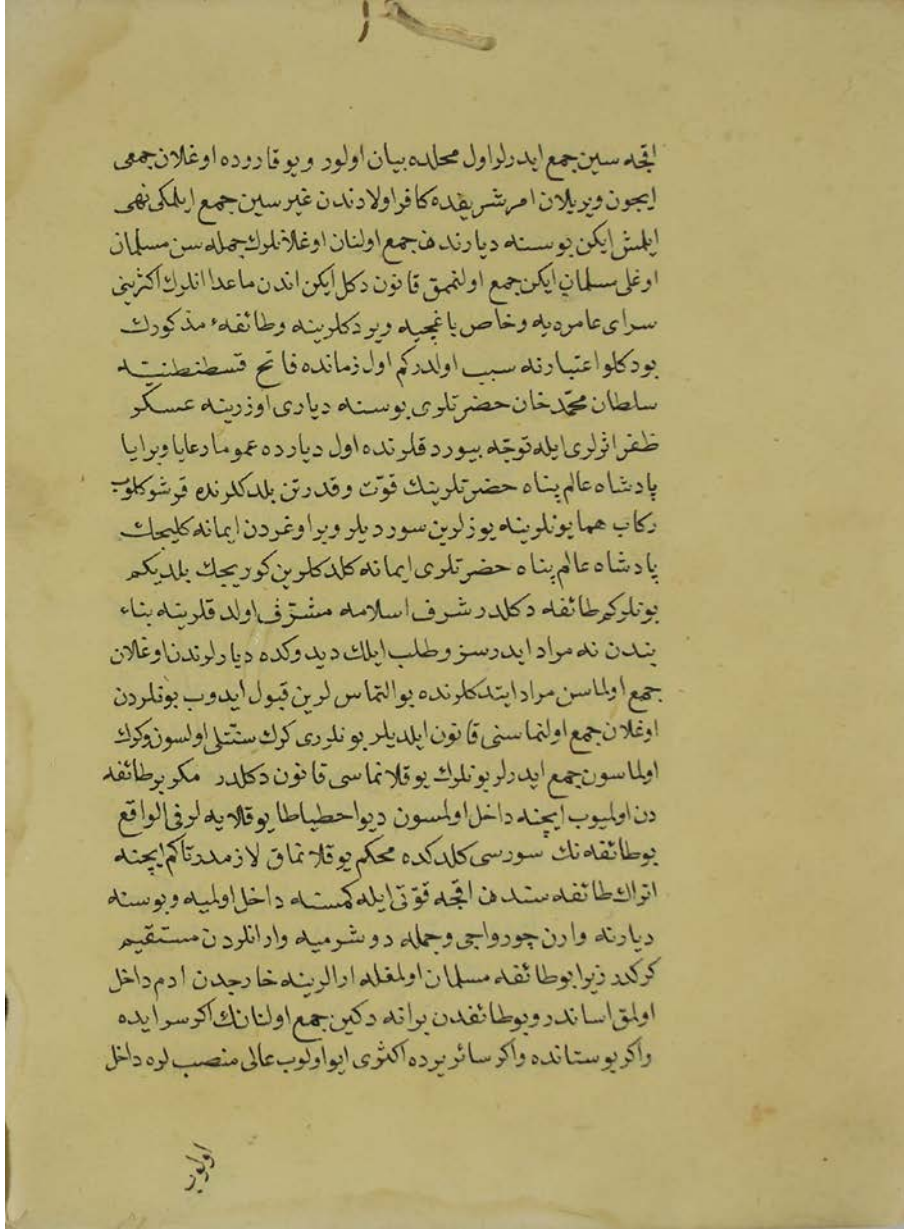 اقجه سین جمع ایدرلر اول محلده بیان اولور ویوقاروده اوغلان جمعی
ایچون ویریلان امر شریفده کافر اولادندن غیر سین جمع ایلمکی نهی
ایلمش ایکن بوسنه دیارندن جمع اولنان اوغلانلرك جمله سن مسلمان
اوغلی مسلمان ایکن جمع اولنمق قانون دکل ایکن اندن ماعدا انلرك اکثرینی
سرای عامره یه وخاص باغچیه ویردکلرینه وطائفهٔ مذکورك
بودکلو اعتبارنه سبب اولدرکم اول زمانده فاتح قسطنطنیه
سلطان محمد خان حضرتلری بوسنه دیاری اوزرینه عسکر
ظفر اثرلری ایله توجه بیوردقلرنده اول دیارده عموما رعایا وبرایا
پادشاه عالم پناه حضرتلرینك قوت وقدرتن بلدکلرنده قرشو کلوب
رکاب همایونلرینه یوزلرین سوردیلر وبر اوغردن ایمانه کلیجك
پادشاه عالم پناه حضرتلری ایمانه کلدکلرین کوریجك بلدیکم
بونلرکم طائفه دکلدر شرف اسلامه مشرف اولدقلرینه بناء
بندن نه مراد ایدرسز وطلب ایلك دیدوکده دیارلرندن اوغلان
جمع اولماسن مراد ایتدکلرنده بو التماس لرین قبول ایدوب بونلردن
اوغلان جمع اولنماسنی قانون ایلدیلر بونلری کرك سنتلی اولسون وکرك
اولماسون جمع ایدرلر بونلرك یوقلانماسی قانون دکلدر مکر برطائفه
دن اولمیوب ایچنه داخل اولمسون دیو احطیاطا یوقلایه لر فی الواقع
بوطائفه نك سورسی کلدکده محکم یوقلانماق لازمدرتاکم ایچنه
اتراك طائفه سندن اقجه قوتی ایله کمسنه داخل اولمیه وبوسنه
دیارنه وارن چورواجی وجمله دوشرمیه وارانلردن مستقیم
کرکدر زیرا بوطائفه مسلمان اولمغله ارالرینه خارجدن ادم داخل
اولمق اساندر وبوطائفدن برانه دکین جمع اولنانك اکر سرایده
واکر بوستانده واکر سائر یرده اکثری ایو اولوب عالی منصب لره داخل
اولور